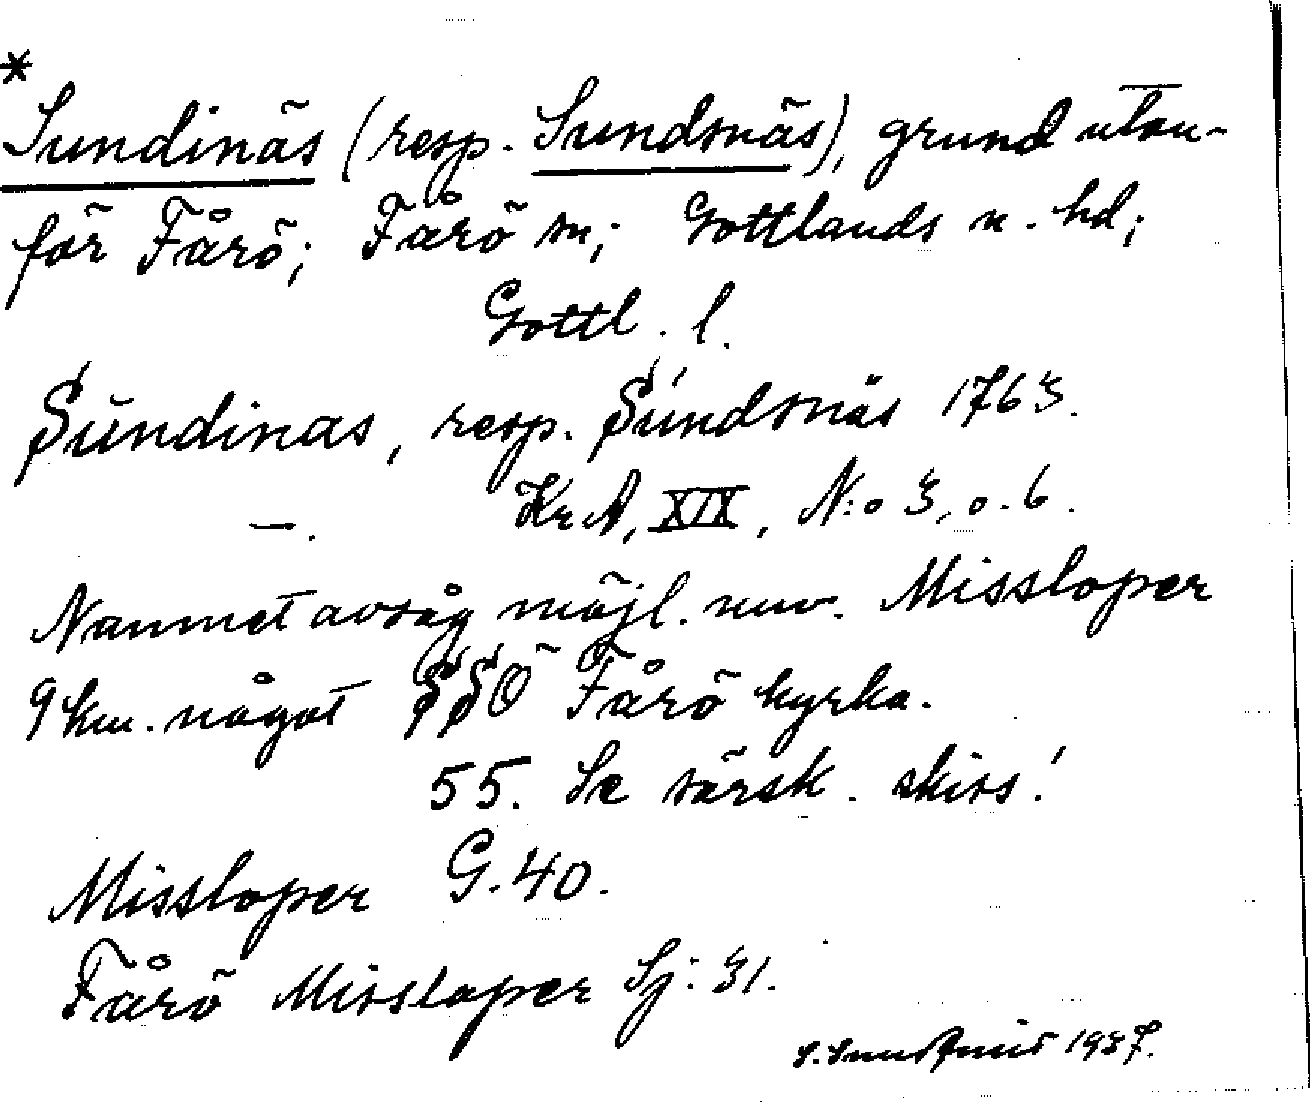 *
Sundinäs (resp. Sundsnäs), grund utan-
för Fårö; Fårö sn; Gottlands n. hd;
Gottl. l.
Sundinas, resp. Sundsnäs 1763.
—. KrA, XIX, N:o 3, o. 6.
Namnet avsåg möjl. nuv. Missloper
9 km. något SSO Fårö kyrka.
55. Se särsk. skiss!
Missloper G. 40.
Fårö Missloper Sj: 31.
1937.